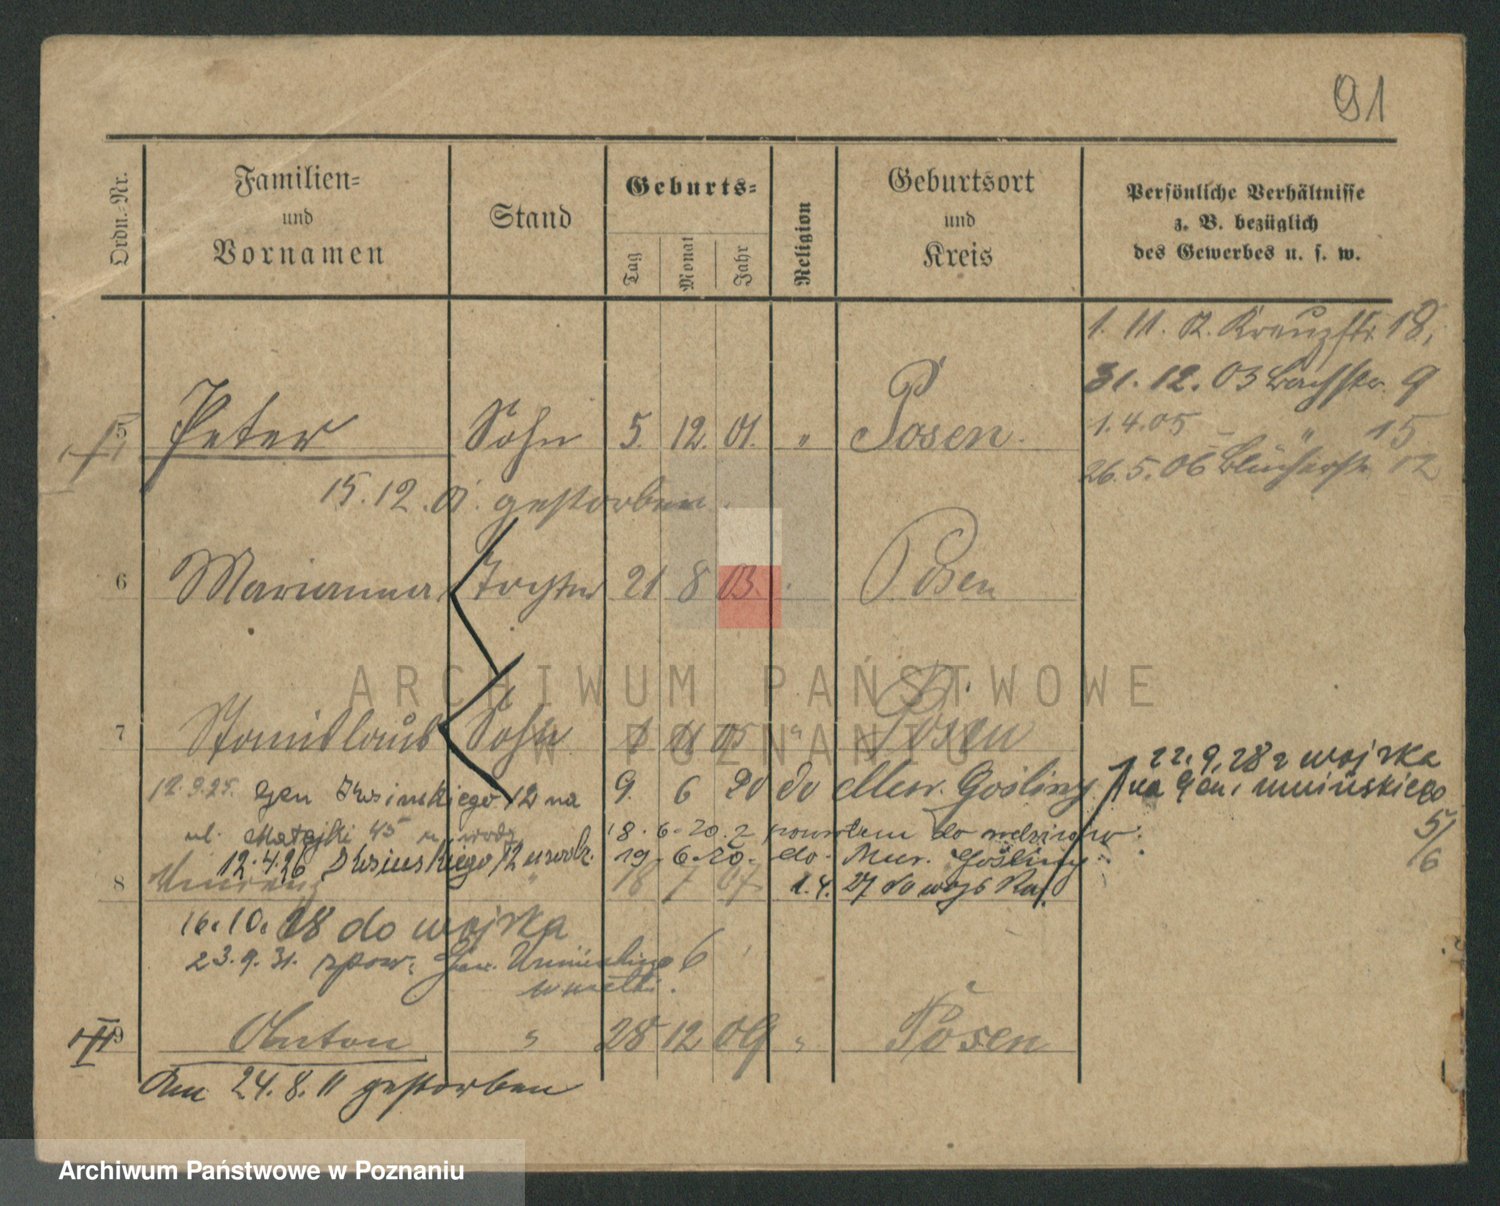 91
Ordn.-Nr.
Familien-
und
Vornamen
Stand
Geburts-
Tag
Monat
Jahr
Religion
Geburtsort
und
Kreis
Persönliche Verhältnisse
z. B. bezüglich
des Gewerbes u. s. w.
1. 11. 02. Kreuzstr. 18,
31. 12. 03 Bachstr. 9
1. 4. 05 — " 15
26. 5. 06 Blücherstr. 12
5 Peter Sohn 5. 12. 01. " Posen.
15. 12. 01. gestorben.
6 Marianna Tochter 21 8 03. Posen
7 Stanislaus Sohn 1 11 05 " Posen
22. 9. 28 z wojska
na Gen. Umińskiego
5/6
12. 9. 25. gen Kosinskiego 12 na 9. 6 20 do Mur. Gośliny
ul. Matejki 45 u wodz 18. 6. 20. z powrotem do rodziców.
12. 4. 26 Kosinskiego 12 u rodz. 19. 6. 20. do. Mur. Gośliny
8 " 18 7 07 1. 4. 27 do wojska
16. 10. 28 do wojska
23. 9. 31. spow. Gen. Umińskiego 6
9 Anton " 28 12 09 " Posen
Am 24. 8. 11 gestorben
ARCHIWUM PAŃSTWOWE
W POZNANIU
Archiwum Państwowe w Poznaniu